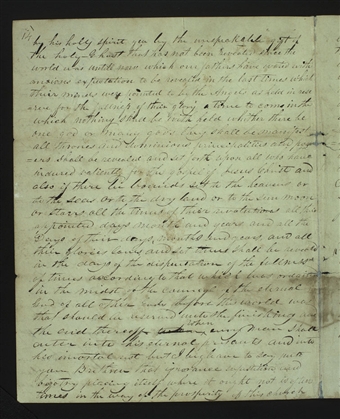 by his holy spirit yea by the unspeakable gift of
the holy Ghost that has not been revealed since the
world was untill now which our fathers have waited with
anxious expectation to be revealed in the last times which
their minds were pointed to by the Angels as held in res
erve for the fulness of their glory a time to come in the
which nothing shall be withheld whether there be
one god or many gods they shall be manifest
all thrones and dominions principalities and pow
ers shall be revealed and set forth upon all who have
indured valiantly for the gospel of Jesus Christ and
also if there be bounds set to the heavens or
to the seas or to the dry land or to the sun moon
or stars all the times of their revolutions all their
appointed days months and years and all the
Days of their days, months and years, and all
their glories laws and set times shall be revealed
in the days of the dispensation of the fullness
of times according to that which was ordained
in the midst of the council of the eternal
God of all other Gods before this world was
that should be reserved unto the finishing and
the end thereof when every man shall
enter into his eternal presents and into
his immortal rest but I beg leave to say unto
you Brethren that ignorance superstition and
bigotry placing itself where it ought not is often
times in the way of the prosperity of this church